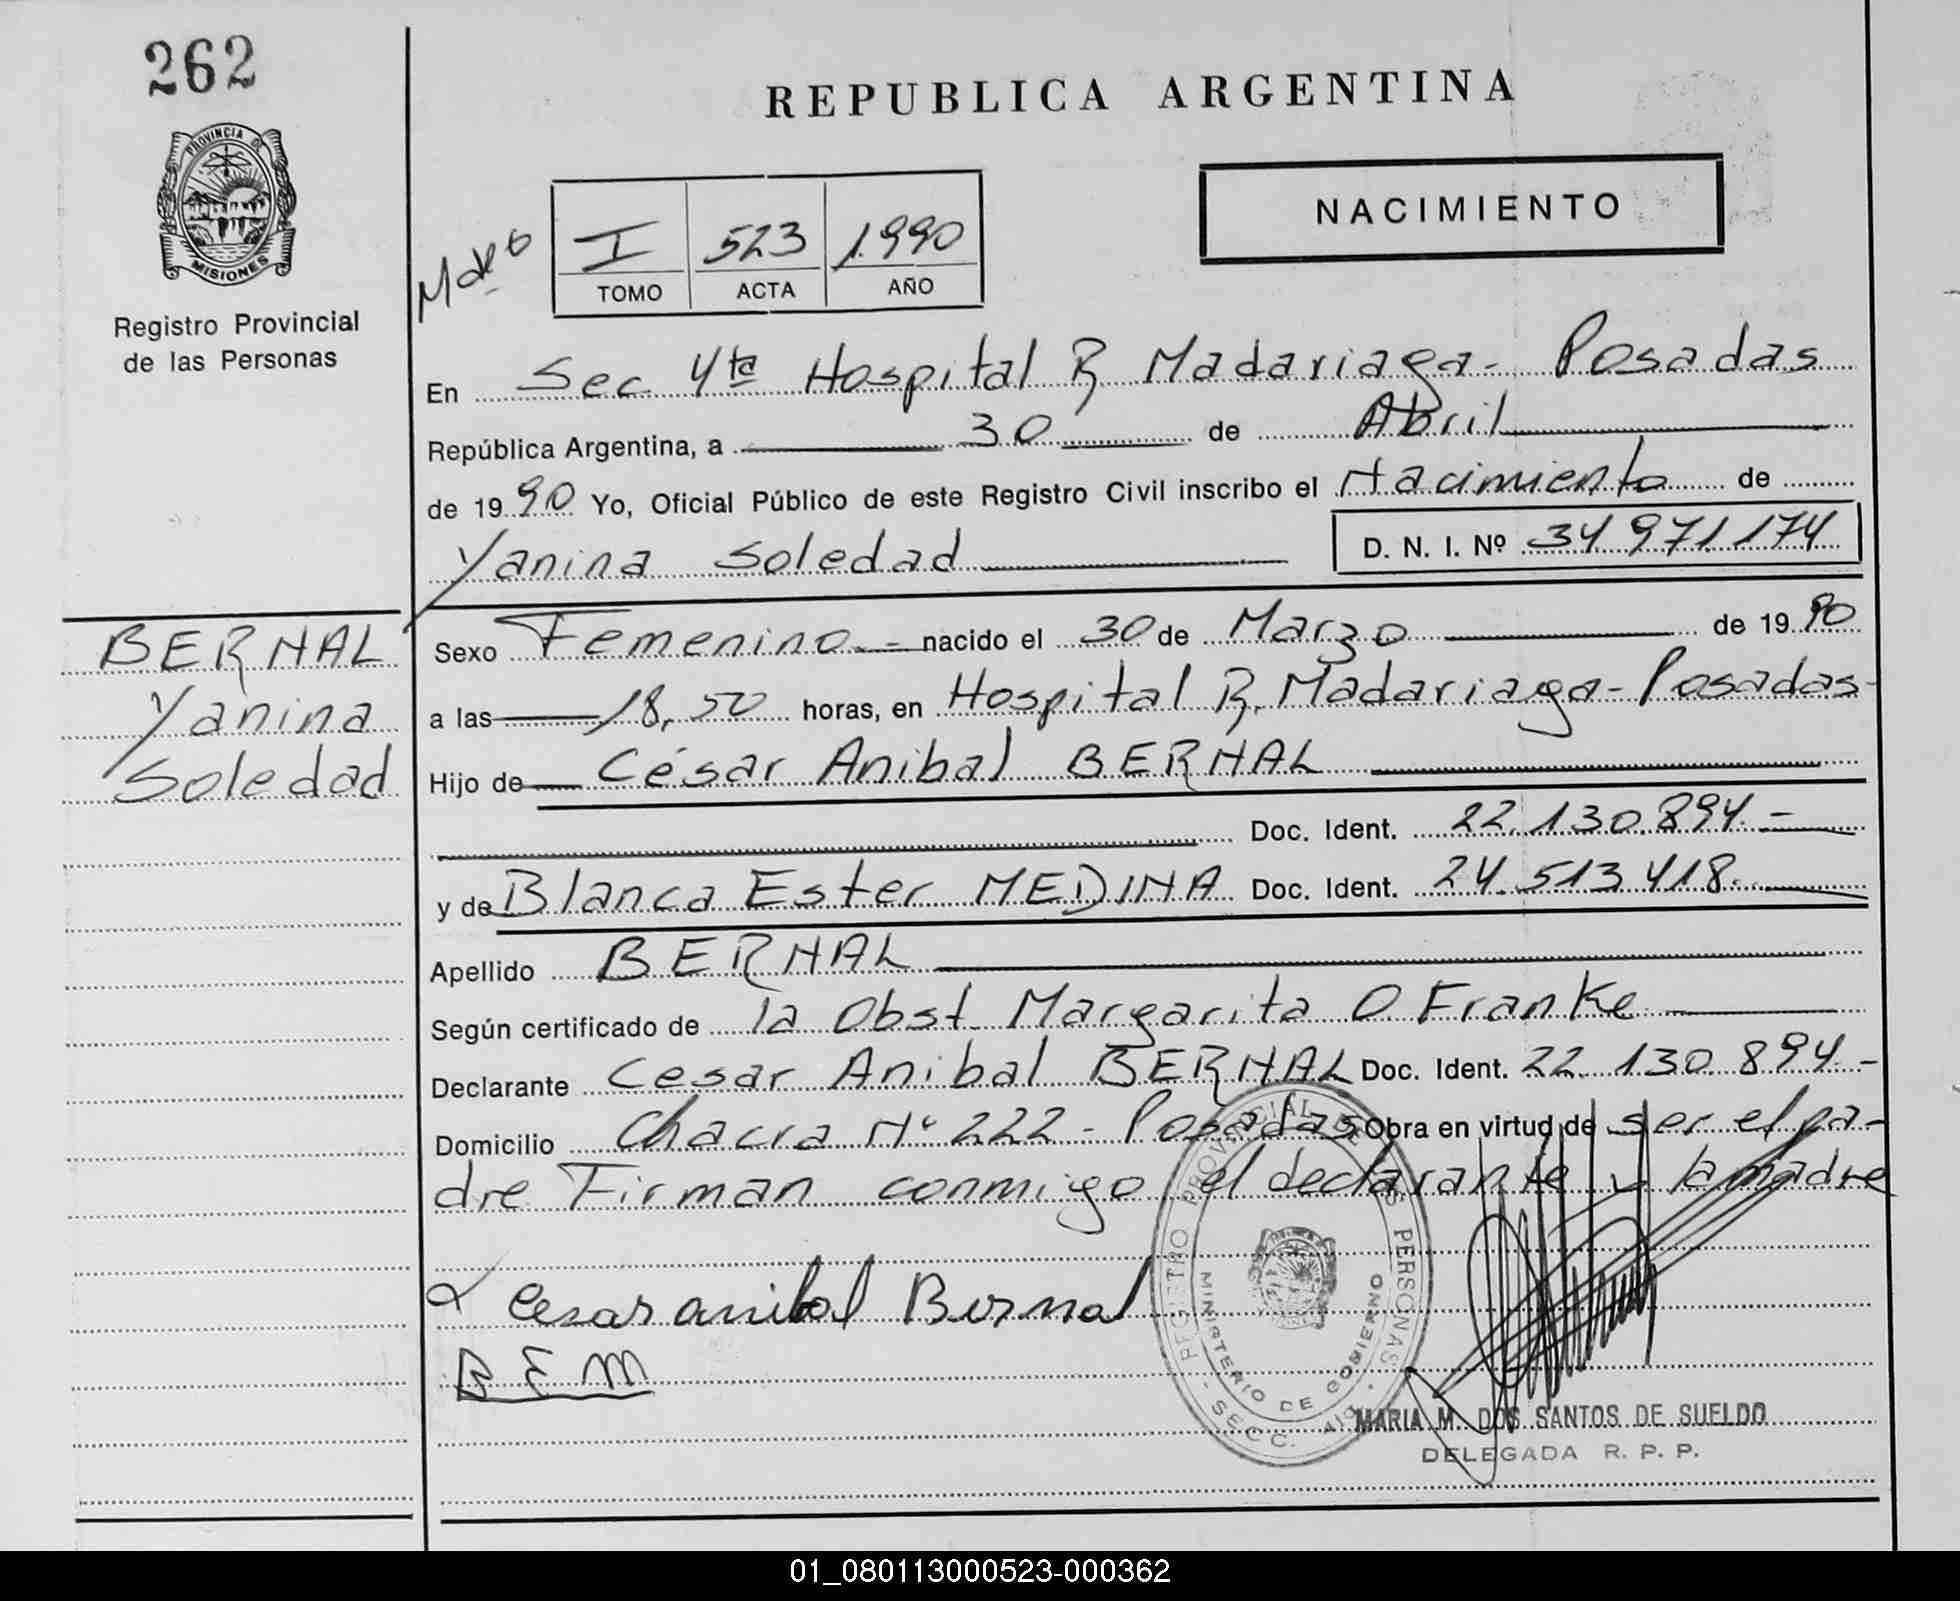 262
PROVINCIA DE
MISIONES
Registro Provincial
de las Personas
REPUBLICA ARGENTINA
NACIMIENTO
I 523 1990
TOMO ACTA AÑO
En Sec 4ta Hospital R Madariaga - Posadas
República Argentina, a 30 de Abril
de 1990 Yo, Oficial Público de este Registro Civil inscribo el Nacimiento de
Yanina Soledad D. N. I. Nº 34 971.174
BERNAL
Yanina
Soledad
Sexo Femenino.- nacido el 30 de Marzo de 1990
a las 18,50 horas, en Hospital R. Madariaga - Posadas-
Hijo de César Anibal BERNAL
Doc. Ident. 22.130.894.-
y de Blanca Ester MEDINA Doc. Ident. 24.513.418.
Apellido BERNAL
Según certificado de la Obst. Margarita O Franke
Declarante Cesar Anibal BERNAL Doc. Ident. 22.130.894.-
Domicilio Chacra Nº 222 - Posadas Obra en virtud de ser el pa-
dre Firman conmigo el declarante y la madre
Cesar anibal Bernal
B E M
REGISTRO PROVINCIAL DE LAS PERSONAS
MINISTERIO DE GOBIERNO
SECC. 4ta
MARIA M. DOS SANTOS DE SUELDO
DELEGADA R. P. P.
01_080113000523-000362